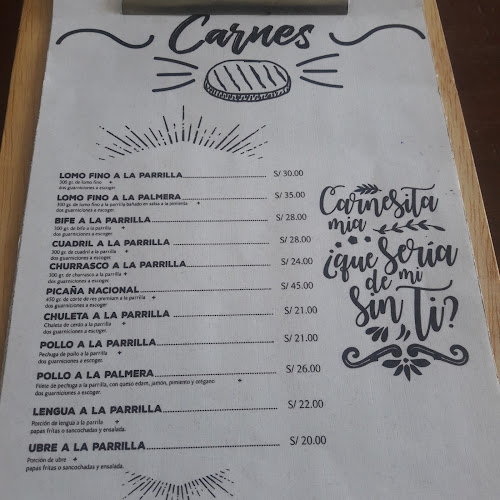 Carnes
LOMO FINO A LA PARRILLA S/ 30.00
300 gr. de lomo fino +
dos guarniciones a escoger
LOMO FINO A LA PALMERA S/ 35.00
300 gr. de lomo fino a la parrilla bañado en salsa a la pimienta +
dos guarniciones a escoger
BIFE A LA PARRILLA S/ 28.00
300 gr. de bife a la parrilla +
dos guarniciones a escoger
CUADRIL A LA PARRILLA S/ 28.00
300 gr. de cuadril a la parrilla +
dos guarniciones a escoger
CHURRASCO A LA PARRILLA S/ 24.00
300 gr. de churrasco a la parrilla +
dos guarniciones a escoger
PICAÑA NACIONAL S/ 45.00
450 gr. de corte de res premium a la parrilla +
dos guarniciones a escoger
CHULETA A LA PARRILLA S/ 21.00
Chuleta de cerdo a la parrilla +
dos guarniciones a escoger
POLLO A LA PARRILLA S/ 21.00
Pechuga de pollo a la parrilla +
dos guarniciones a escoger
POLLO A LA PALMERA S/ 26.00
Filete de pechuga a la parrilla, con queso edam, jamón, pimiento y orégano +
dos guarniciones a escoger
LENGUA A LA PARRILLA S/ 22.00
Porción de lengua a la parrilla +
papas fritas o sancochadas y ensalada.
UBRE A LA PARRILLA S/ 20.00
Porción de ubre +
papas fritas o sancochadas y ensalada.
Carnesita
mia
¿que Sería
de mi
Sin Ti?